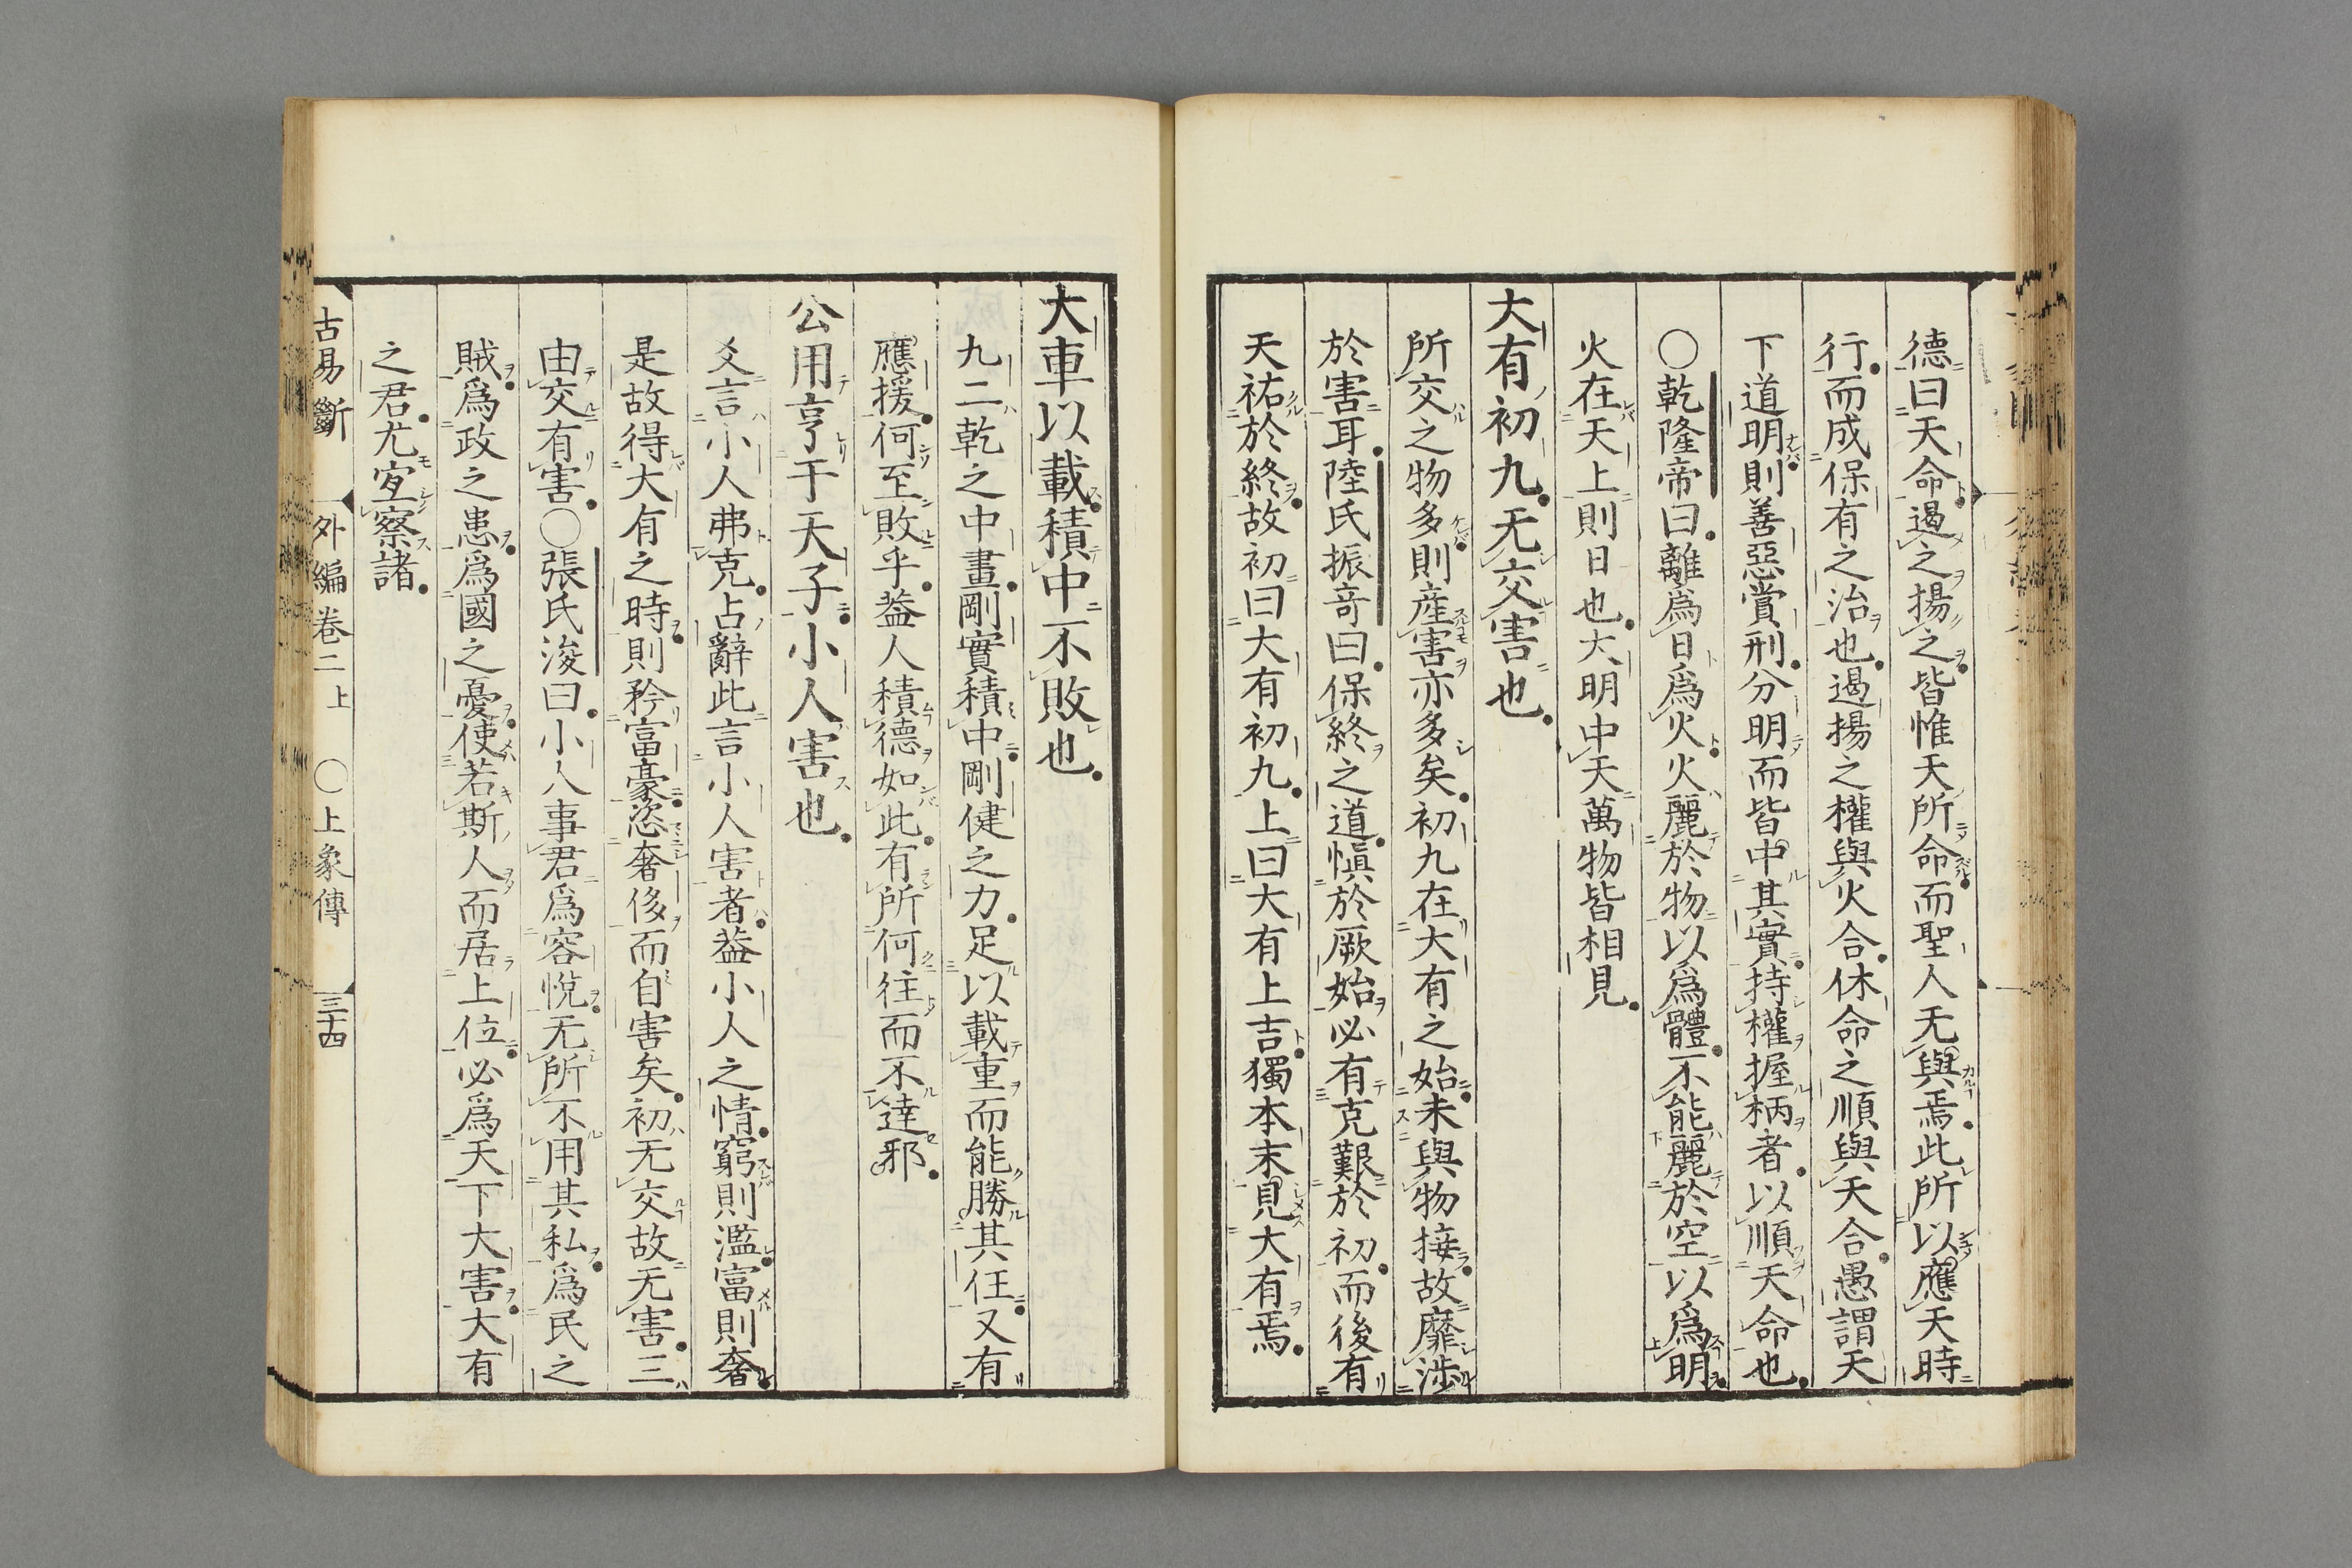 德曰天命遏之揚之皆惟天所命而聖人无與焉此所以應天時
行而成保有之治也遏揚之權與火合休命之順與天合愚謂天
下道明則善惡賞刑分明而皆中其實持權握柄者以順天命也
〇乾隆帝曰離爲日爲火火麗於物以爲體不能麗於空以爲明
火在天上則日也大明中天萬物皆相見
大有初九无交害也
所交之物多則産害亦多矣初九在大有之始未與物接故靡涉
於害耳陸氏振竒曰保終之道愼於厥始必有克艱於初而後有
天祐於終故初曰大有初九上曰大有上吉獨本末見大有焉
大車以載積中不敗也
九二乾之中畫剛實積中剛健之力足以載重而能勝其任又有
應援何至敗乎葢人積德如此有所何往而不達邪
公用亨于天子小人害也
爻言小人弗克占辭此言小人害者葢小人之情窮則濫富則奢
是故得大有之時則矜富豪恣奢侈而自害矣初无交故无害三
由交有害〇張氏浚曰小人事君爲容悅无所不用其私爲民之
賊爲政之患爲國之憂使若斯人而居上位必爲天下大害大有
之君尤宐察諸
古易斷 外編卷二上 〇上象傳 三十四